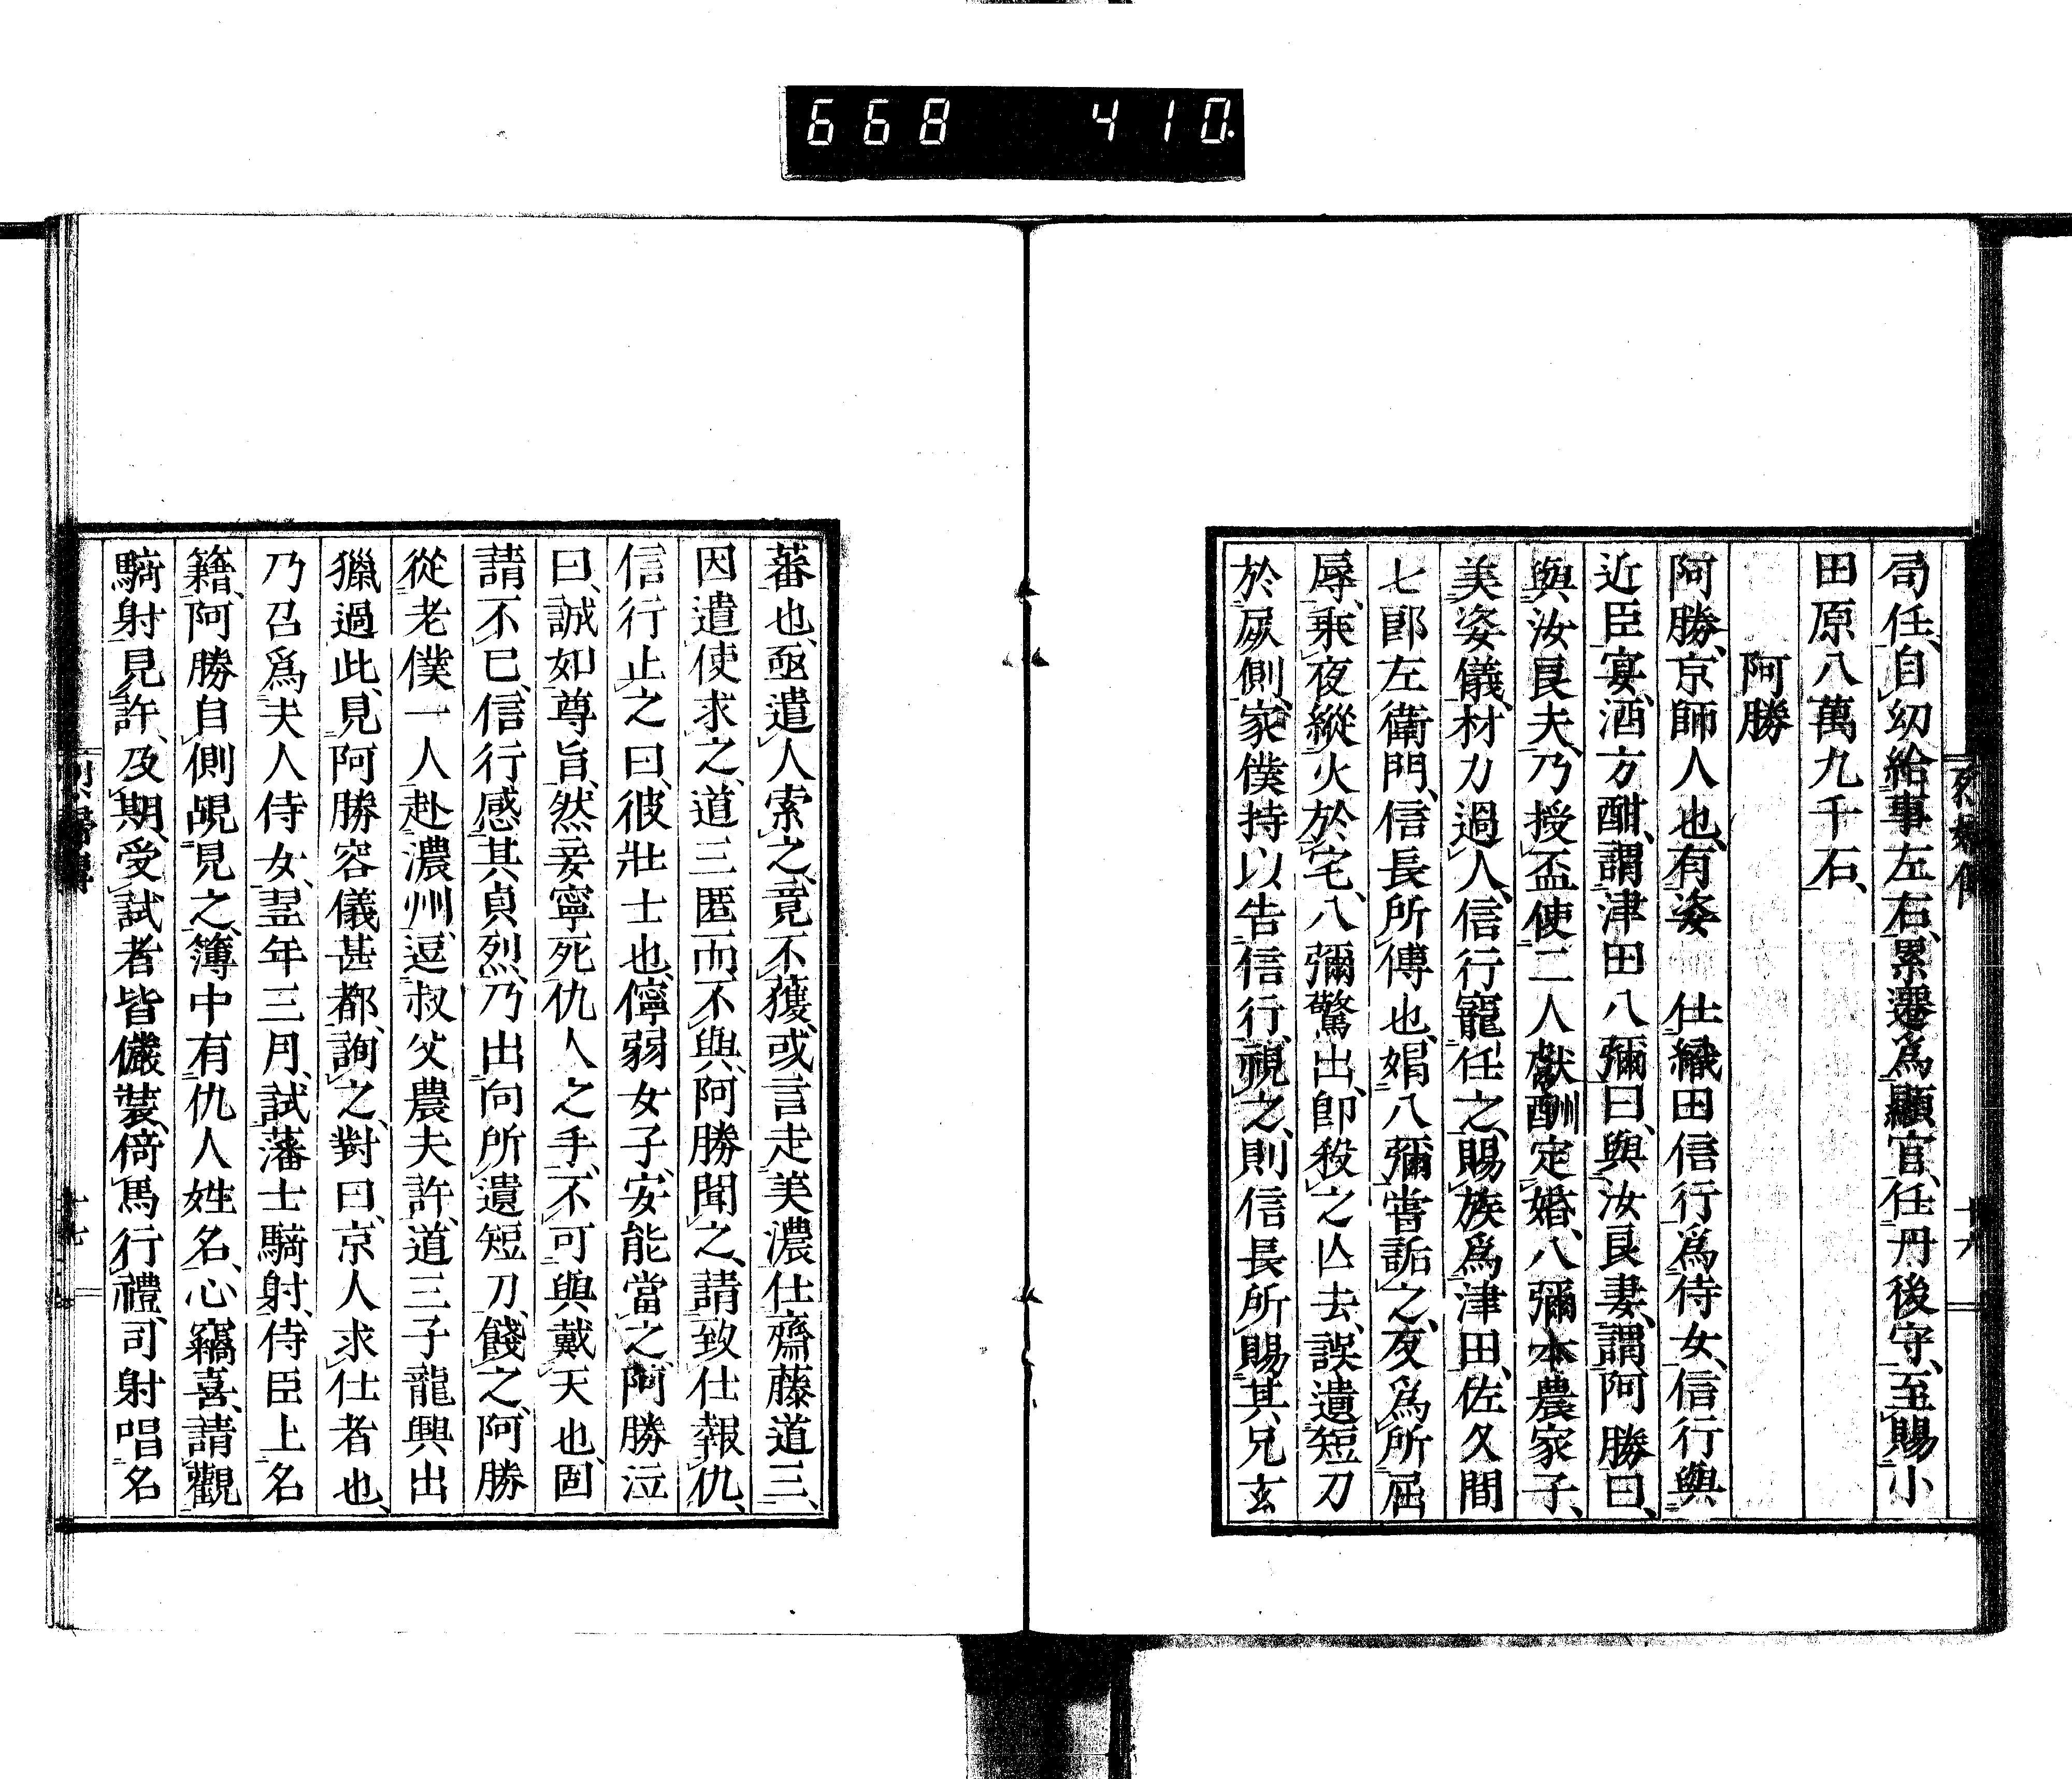 668 410
司任、自幼給事左右、累遷爲顯官、任丹後守、至賜小
田原八萬九千石、
阿勝
阿勝、京師人也、有姿 仕織田信行爲侍女、信行與
近臣宴、酒方酣、謂津田八彌曰、與汝良妻、謂阿勝曰、
與汝良夫、乃授盃使二人獻酬定婚、八彌本農家子、
美姿儀、材力過人、信行寵任之、賜族爲津田、佐久間
七郎左衛門、信長所傅也、娟八彌、嘗詬之、反爲所屈
辱、乘夜縱火於宅、八彌驚出、卽殺之亾去、誤遺短刀
於屍側、家僕持以告信行、視之、則信長所賜其兄玄
蕃也、亟遣人索之、竟不獲、或言走美濃仕齋藤道三、
因遣使求之、道三匿而不與、阿勝聞之、請致仕報仇、
信行止之曰、彼壯士也、儜弱女子、安能當之、阿勝泣
曰、誠如尊旨、然妾寧死仇人之手、不可與戴天也、固
請不已、信行感其貞烈、乃出向所遺短刀、餞之、阿勝
從老僕一人赴濃州、逗叔父農夫許、道三子龍興出
獵過此、見阿勝容儀甚都、詢之、對曰、京人求仕者也、
乃召爲夫人侍女、翌年三月、試藩士騎射、侍臣上名
籍、阿勝自側覘見之、簿中有仇人姓名、心竊喜、請觀
騎射見許、及期、受試者皆儼裝、倚馬行禮、司射唱名
十六
十七